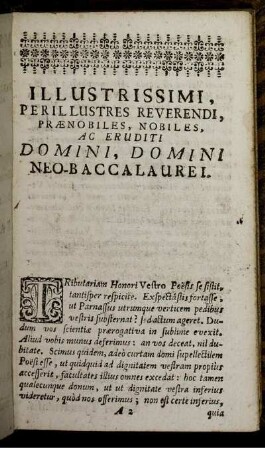 ILLUSTRISSIMI,
PERILLUSTRES REVERENDI,
PRÆNOBILES, NOBILES,
AC ERUDITI
DOMINI, DOMINI
NEO-BACCALAUREI.
TRibutariam Honori Vestro Poësis se sistit,
tantisper respicite. Exspectâstis fortasse,
ut Parnassus utrumque verticem pedibus
vestris substernat? Jactum ageret. Du-
dum vos scientiæ prærogativa in sublime evexit.
Aliud vobis munus deferimus: an vos deceat, nil du-
bitate. Scimus quidem, adeò curtam domi supellectilem
Poësi esse, ut quidquid ad dignitatem vestram propiùs
accesserit, facultates illius omnes excedat: hoc tamen
qualecunque donum, ut ut dignitate vestra inferius
videretur, quòd nos offerimus; non est certè inferius,
A 2 quia